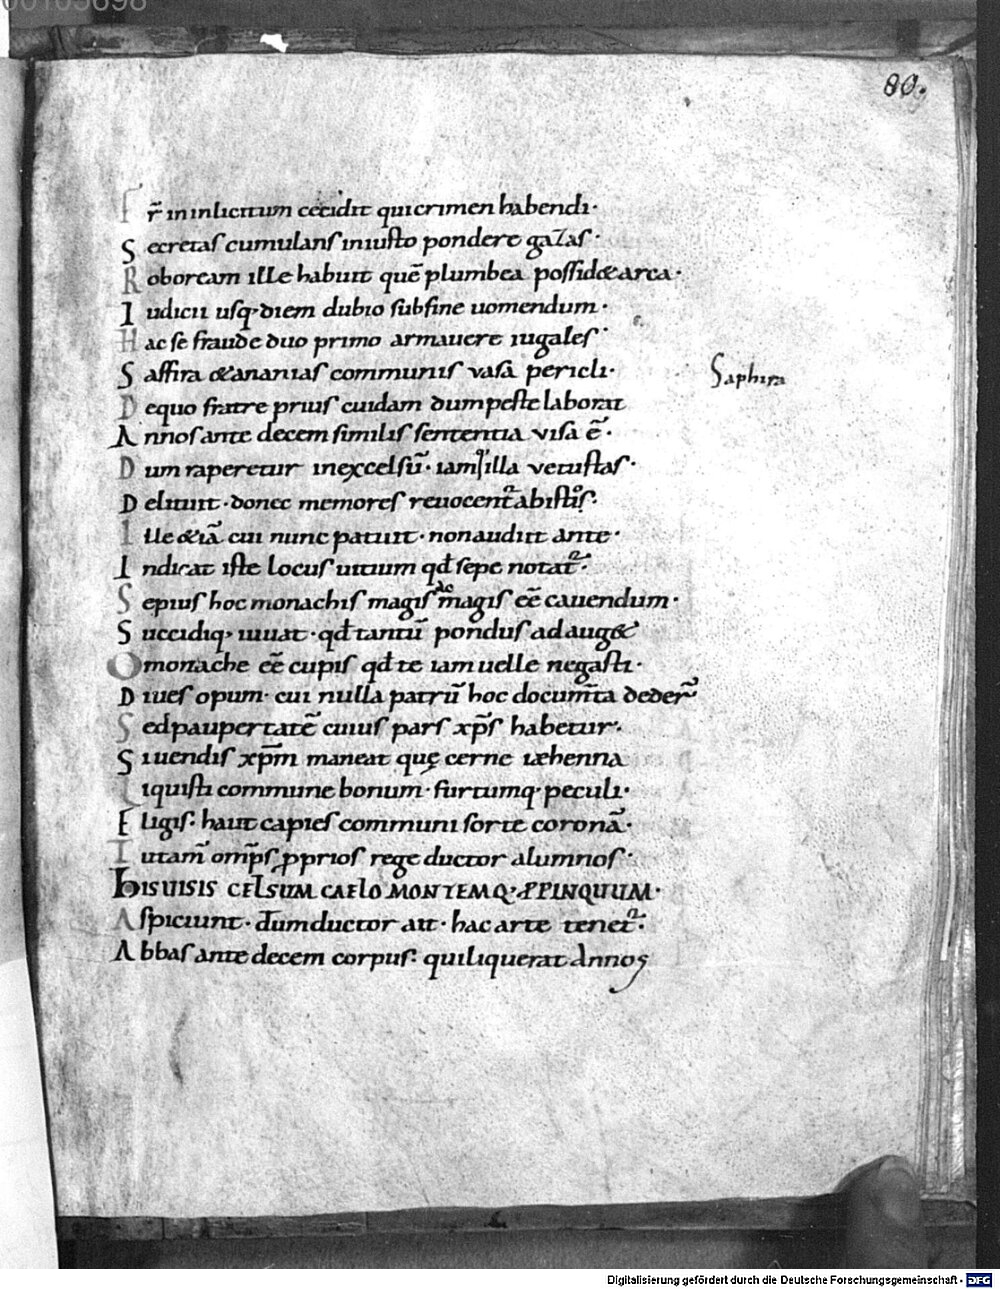 00103698
80.
Fr̄ in inlicitum cecidit qui crimen habendi·
Secretas cumulans iniusto pondere gazas·
Roboream ille habuit quē plumbea possid& arca·
Iudicii usq· diem dubio sub fine uomendum·
Hac se fraude duo primo armauere iugales·
Saffira & ananias communis vasa pericli·
Saphira
De quo fratre prius cuidam dum peste laborat
Annos ante decem similis sententia visa ē·
Dum raperetur in excelsū· iam illa vetustas·
Delituit· donec memores reuocent᷑ ab istis·
Ille &iā cui nunc patuit· non audiit ante·
Indicat iste locus uitium qđ sepe notat᷑·
Sepius hoc monachis magis ac magis eē cauendum·
Succidiq· iuuat· qđ tantū pondus adaug&
O monache eē cupis qđ te iam uelle negasti·
Diues opum· cui nulla patrū hoc documtа deder̄
Sed paupertatē cuius pars xp̄s habetur·
Siuendis xp̄m maneat quę cerne iehenna
Liquisti commune bonum· furtumq· peculi·
Eligis· haut capies communi sorte coronā·
Iutam omp̄s ꝓprios rege ductor alumnos·
HIS UISIS CELSUM CAELO MONTEMQ· PPINQUUM·
Aspiciunt· dum ductor ait· hac arte tenet᷑·
Abbas ante decem corpus· qui liquerat Annos
Digitalisierung gefördert durch die Deutsche Forschungsgemeinschaft - DFG